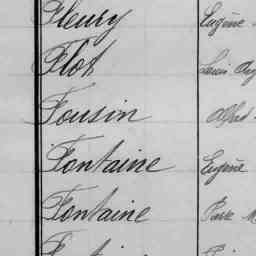 Fleury Eugène
Flot Louis
Fousin Alfred
Fontaine Eugène
Fontaine